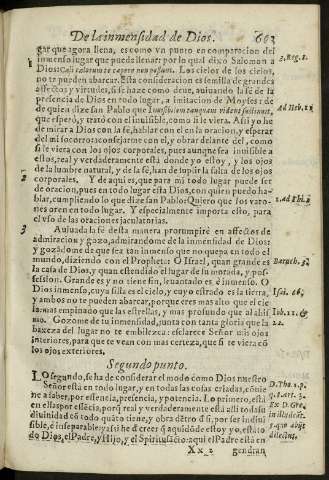 De la inmensidad de Dios. 603
gar que agora llena, es como vn punto en comparacion del
inmenso lugar que puede llenar: por lo qual dixo Salomon a
Dios: Cæli cælorum te capere non possunt. Los cielos de los cielos,
no te pueden abarcar. Esta consideracion es semilla de grandes
affectos y virtudes, si se haze como deue, auiuando la fè de la
presencia de Dios en todo lugar, a imitacion de Moyses: de
de quien dize san Pablo que Inuisibilem tanquam videns sustinuit,
que esperò, y tratò con el inuisible, como si le viera. Assi yo he
de mirar a Dios con la fè, hablar con el en la oracion, y esperar
del mi socorro: consejarme con el, y obrar delante del, como
si le viera con los ojos corporales, pues aunque sea inuisible a
estos, real y verdaderamente està donde yo estoy, y los ojos
de la lumbre natural, y de la fè, han de suplir la falta de los ojos
corporales. Y de aqui es, que para mi todo lugar puede ser
de oracion, pues en todo lugar està Dios, con quien puedo ha-
blar, cumpliendo lo que dize san Pablo: Quiero que los varo-
nes oren en todo lugar. Y especialmente importa esto, para
el vso de las oraciones jaculatorias.
3 Auiuada la fè desta manera prorumpirè en affectos de
admiracion y gozo, admirandome de la inmensidad de Dios
y gozãdome de que sea tan inmenso que no quepa en todo el
mundo, diziendo con el Propheta: O Israel, quan grande es
la casa de Dios, y quan estendido el lugar de su morada, y pos-
session. Grande es y no tiene fin, leuantado es è inmenso. O
Dios inmenso, cuya silla es el cielo, y cuyo estrado es la tierra,
y ambos no te pueden abarcar, porque eres mas alto que el cie-
lo: mas empinado que las estrellas, y mas profundo que al abis-
mo. Gozome de tu inmensidad, junta con tanta gloria que la
baxeza del lugar no te embileze: esclarece Señor mis ojos
interiores, para que te vean con mas certeza, que si te viera cõ
los ojos exteriores.
Segundo punto.
LO segundo, se ha de considerar el modo como Dios nuestro
Señor està en todo lugar, y en todas las cosas criadas, cõuie-
ne a saber, por essencia, presencia, y potencia. Lo primero, està
en ellas por essẽcia, porq̃ real y verdaderamente està alli toda su
diuinidad cõ todo quãto tiene, y obra dẽtro d si, por ser indiui-
sible, è inseparable: y assi he d creer q̃ aquidõde estoy yo, està to-
do Dios, el Padre, y Hijo, y el Spiritusãcto: aqui el Padre està en-
Xx 2 gendran
3. Reg. 8.
Ad Heb. 11
Baruch. 3.
Isai. 66.
Iob. 11. &
22.
D. Tho. 1. p.
q. 8. art. 3.